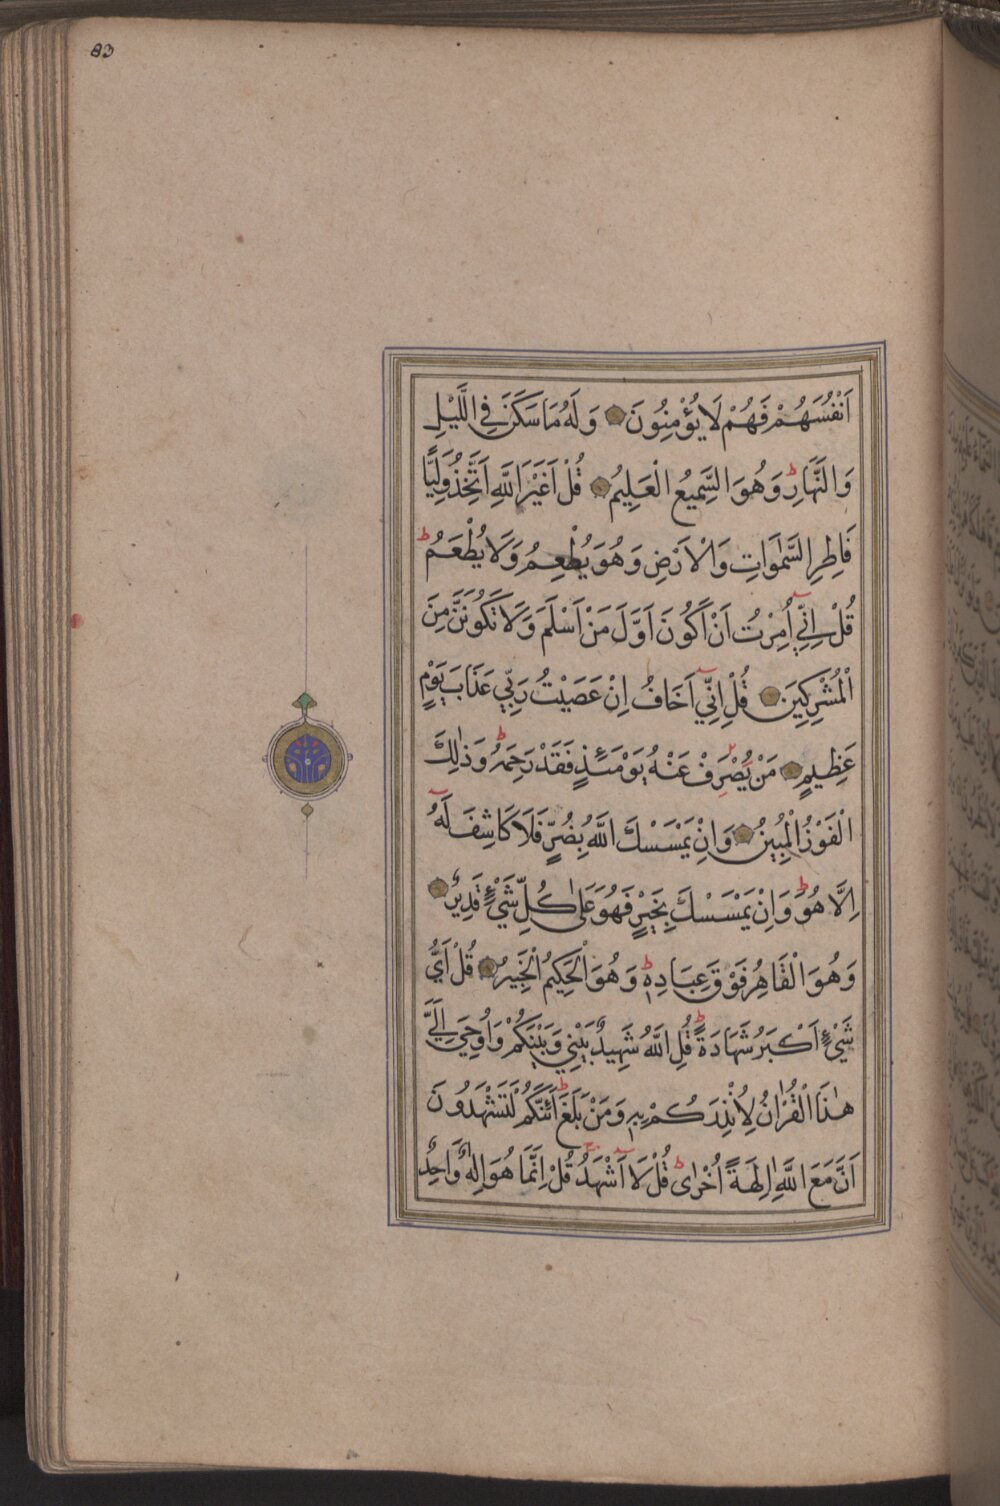 83
اَنْفُسَهُمْ فَهُمْ لَا يُؤْمِنُونَ وَلَهُ مَا سَكَنَ فِي اللَّيْلِ
وَالنَّهَارِ ط وَهُوَ السَّمِيعُ الْعَلِيمُ قُلْ اَغَيْرَ اللَّهِ اَتَّخِذُ وَلِيًّا
فَاطِرِ السَّمٰوَاتِ وَالْاَرْضِ وَهُوَ يُطْعِمُ وَلَا يُطْعَمُ ط
قُلْ اِنِّي اُمِرْتُ اَنْ اَكُونَ اَوَّلَ مَنْ اَسْلَمَ وَلَا تَكُونَنَّ مِنَ
الْمُشْرِكِينَ قُلْ اِنِّي اَخَافُ اِنْ عَصَيْتُ رَبِّي عَذَابَ يَوْمٍ
عَظِيمٍ مَنْ يُصْرَفْ عَنْهُ يَوْمَئِذٍ فَقَدْ رَحِمَهُ ط وَذٰلِكَ
الْفَوْزُ الْمُبِينُ وَاِنْ يَمْسَسْكَ اللَّهُ بِضُرٍّ فَلَا كَاشِفَ لَهُ
اِلَّا هُوَ ط وَاِنْ يَمْسَسْكَ بِخَيْرٍ فَهُوَ عَلٰى كُلِّ شَيْءٍ قَدِيرٌ
وَهُوَ الْقَاهِرُ فَوْقَ عِبَادِهِ ط وَهُوَ الْحَكِيمُ الْخَبِيرُ قُلْ اَيُّ
شَيْءٍ اَكْبَرُ شَهَادَةً ط قُلِ اللَّهُ شَهِيدٌ بَيْنِي وَبَيْنَكُمْ وَاُوحِيَ اِلَيَّ
هٰذَا الْقُرْاٰنُ لِاُنْذِرَكُمْ بِهِ وَمَنْ بَلَغَ ط اَئِنَّكُمْ لَتَشْهَدُونَ
اَنَّ مَعَ اللَّهِ اٰلِهَةً اُخْرٰى ط قُلْ لَا اَشْهَدُ قُلْ اِنَّمَا هُوَ اِلٰهٌ وَاحِدٌ